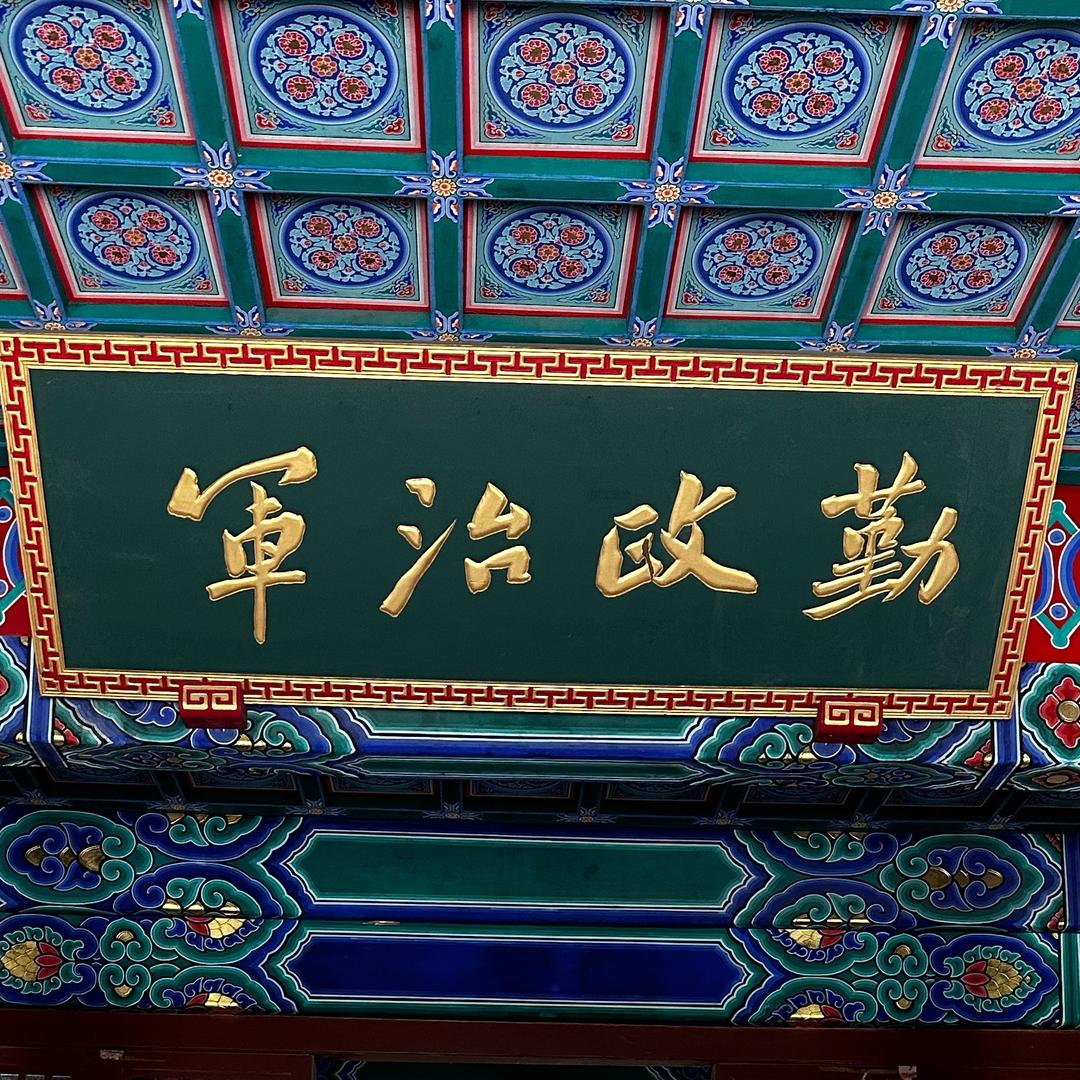 勤政治軍